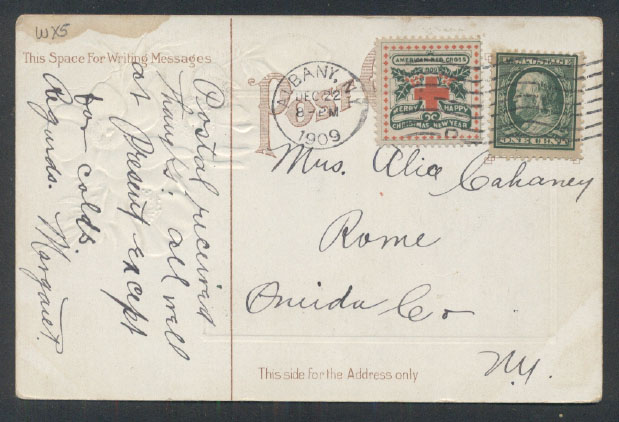 WX5
This Space For Writing Messages
Postal received
thanks. all well
at Present except
for colds
Regards. Margaret.
Post
ALBANY, N.Y.
DEC 22
8-PM
1909
AMERICAN RED CROSS
MERRY HAPPY
CHRISTMAS NEW YEAR
ONE CENT
Mrs. Alice Cahaney
Rome
Oneida Co
N.Y.
This side for the Address only